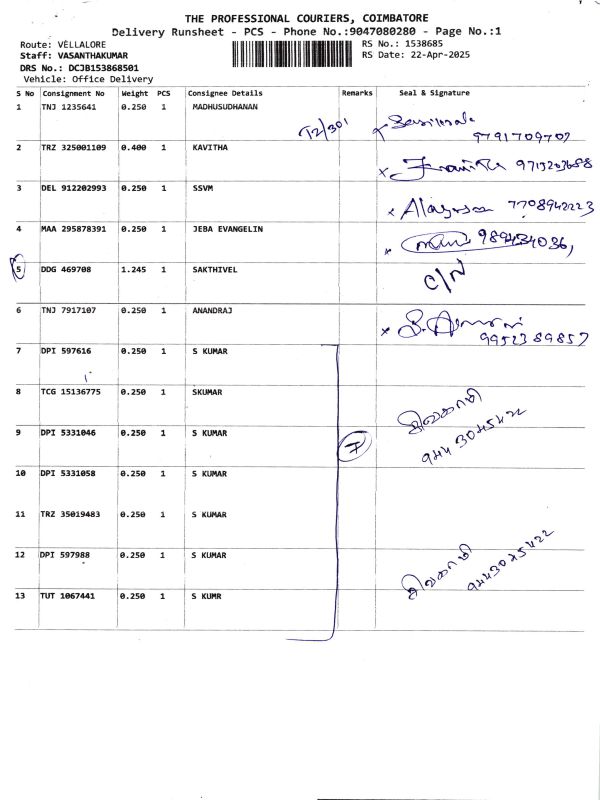 THE PROFESSIONAL COURIERS, COIMBATORE
Delivery Runsheet - PCS - Phone No.:9047080280 - Page No.:1
Route: VELLALORE RS No.: 1538685
Staff: VASANTHAKUMAR RS Date: 22-Apr-2025
DRS No.: DCJB153868501
Vehicle: Office Delivery
S No Consignment No Weight PCS Consignee Details Remarks Seal & Signature
1 TNJ 1235641 0.250 1 MADHUSUDHANAN
T2/301
9791709707
2 TRZ 325001109 0.400 1 KAVITHA
9715203688
3 DEL 912202993 0.250 1 SSVM
7708942223
4 MAA 295878391 0.250 1 JEBA EVANGELIN
5 DDG 469708 1.245 1 SAKTHIVEL C/N
6 TNJ 7917107 0.250 1 ANANDRAJ
9952389857
7 DPI 597616 0.250 1 S KUMAR
8 TCG 15136775 0.250 1 SKUMAR
சிவகாமி
9443045422
9 DPI 5331046 0.250 1 S KUMAR 7
10 DPI 5331058 0.250 1 S KUMAR
11 TRZ 35019483 0.250 1 S KUMAR
12 DPI 597988 0.250 1 S KUMAR
சிவகாமி
9443045422
13 TUT 1067441 0.250 1 S KUMR